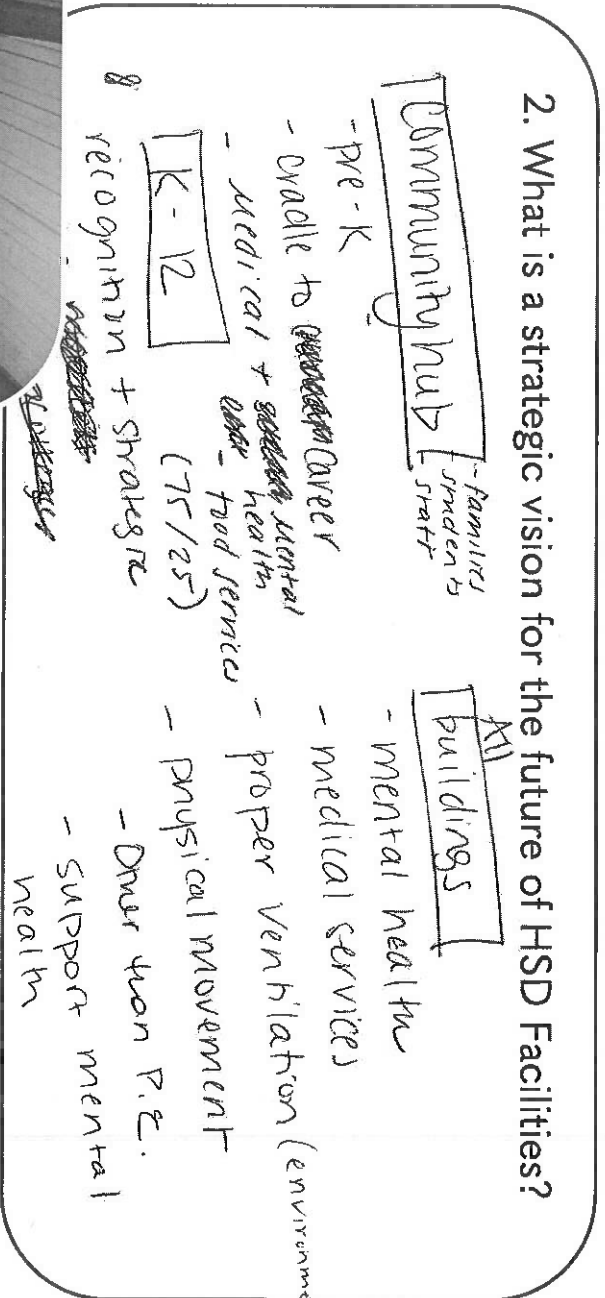 2. What is a strategic vision for the future of HSD Facilities?
Community hub
- families
students
staff
- pre-K
- cradle to Career
- Medical + mental
health
- food services
K-12
(75/25)
recognition + strategic
All
buildings
- mental health
- medical services
- proper ventilation (environme
- physical movement
- Other than P.E.
- support mental
health